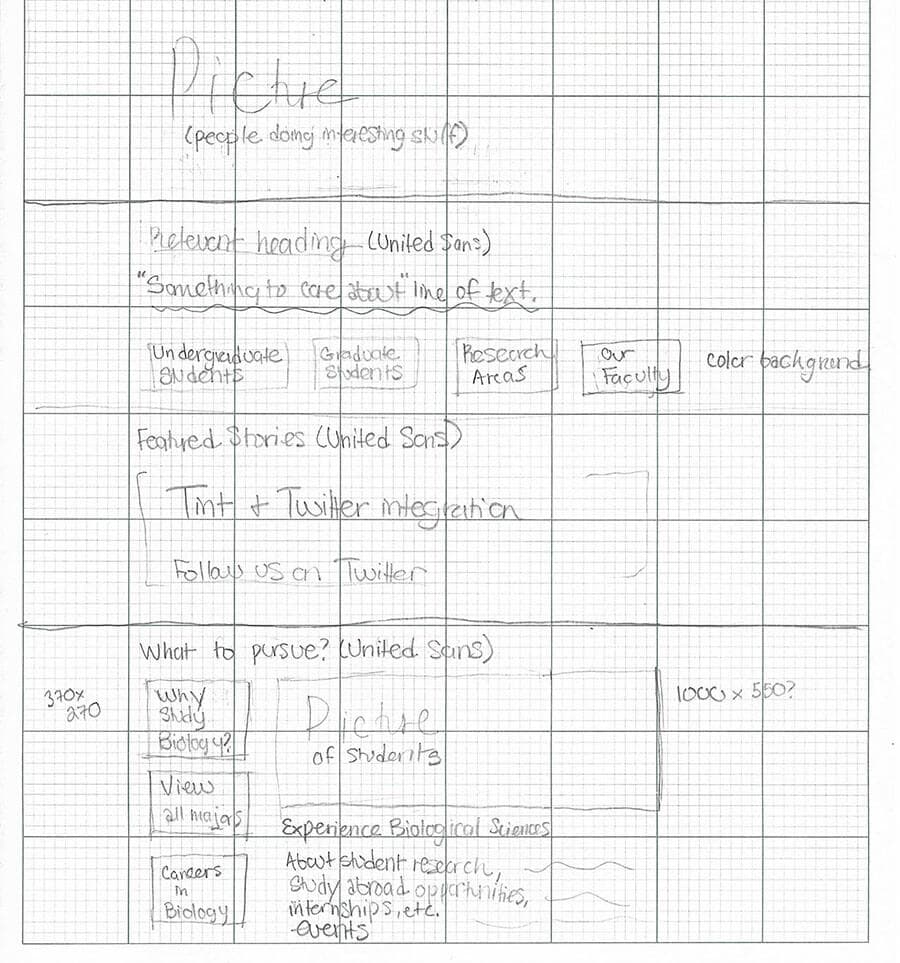 Picture
(people doing interesting stuff)
Relevent heading (United Sans)
"Something to care about" line of text.
Undergraduate
students
Graduate
Students
Research
Areas
Our
Faculty
color background
Featured Stories (United Sans)
Tint + Twitter integration
Follow us on Twitter
What to pursue? (United Sans)
370x
270
Why
Study
Biology?
Picture
of students
1000 x 550?
View
all majors
Experience Biological Sciences
Careers
in
Biology
About student research,
study abroad opportunities,
internships, etc.
-events